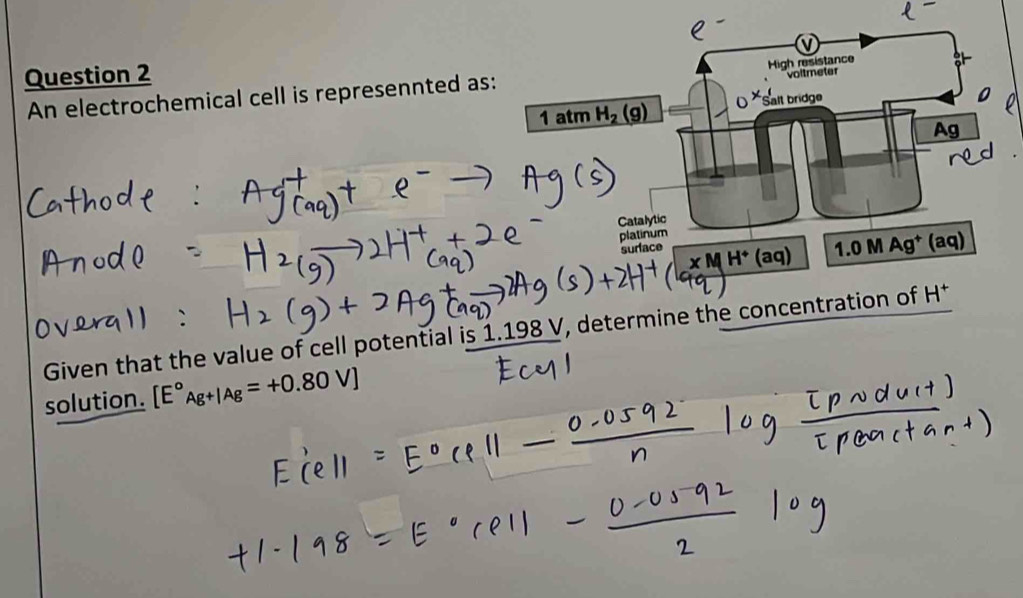 Question 2
An electrochemical cell is representnted as:
e⁻
e⁻
V
High resistance
voltmeter
ox
Salt bridge
1 atm H₂ (g)
Ag
red
Catalytic
platinum
surface
x M H⁺ (aq)
1.0 M Ag⁺ (aq)
Cathode : Ag⁺(aq) + e⁻ → Ag(s)
Anode = H₂(g) → 2H⁺(aq) + 2e⁻
overall : H₂(g) + 2Ag⁺(aq) → 2Ag(s) + 2H⁺(aq)
Given that the value of cell potential is 1.198 V, determine the concentration of H⁺
solution. [E° Ag+|Ag = +0.80 V]
Ecell
Ecell = E°cell − 0.0592/n log [product]/[reactant]
+1.198 = E°cell − 0.0592/2 log